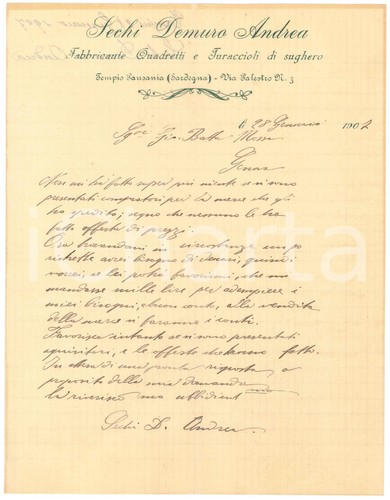 Sechi Demuro Andrea
Fabbricante Quadretti e Turaccioli di sughero
Tempio Pausania (Sardegna) - Via Palestro N. 3
li 28 Gennaio 1907
Sgr Gio Batta
Genova
Non mi ha fatto saper più niente se si sono
presentati compratori per la merce che gli
ho spedito; segno che nessuno le ha
fatto offerta di prezzi.
Ora trovandomi in circostanze un po
ristrette avrei bisogno di denari, quindi
vorrei, se lei potrà favorirmi, che mi
mandasse mille lire per adempiere i
miei bisogni, alla vendita
della merce si faranno i conti.
Favorisca intanto se si sono presentati
acquisitori, e le offerte che hanno fatto.
In attesa di una pronta risposta a
proposito della mia domanda
la riverisco suo
Sechi D. Andrea